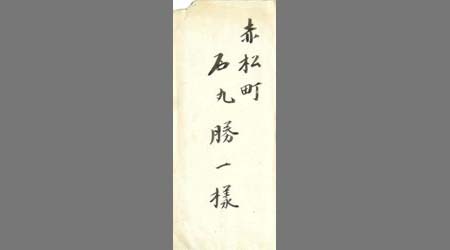 赤松町
石丸勝一様